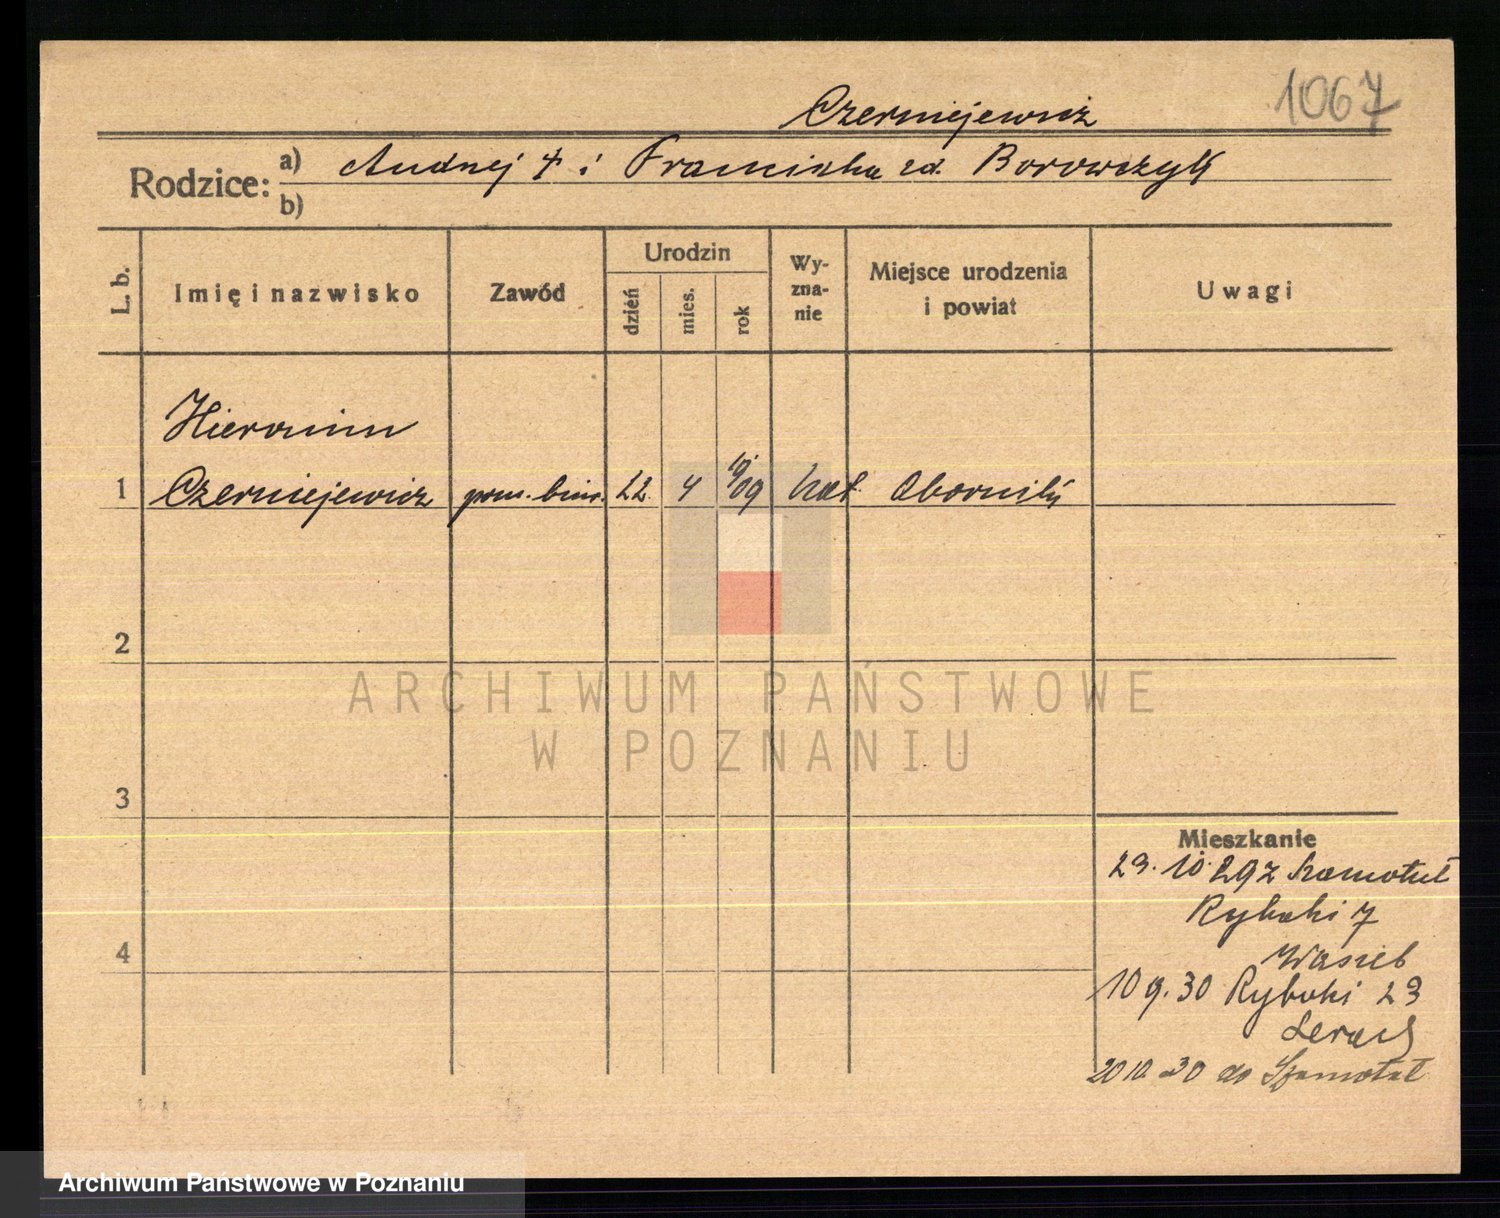 1067
Czerniejewicz
Rodzice:
a) Andrzej † i Franciszka zd. Borowczyk
b)
L. b.
Imię i nazwisko
Zawód
Urodzin
dzień
mies.
rok
Wy-
zna-
nie
Miejsce urodzenia
i powiat
Uwagi
Hieronim
1 Czerniejewicz prac. biur. 22. 4 09 kat. Oborniki
2
3
4
Mieszkanie
23.10.29 z Szamotuł
Rybaki 7
10 9. 30 Rybaki 23
20 10 30 do Szamotuł
ARCHIWUM PAŃSTWOWE
W POZNANIU
Archiwum Państwowe w Poznaniu